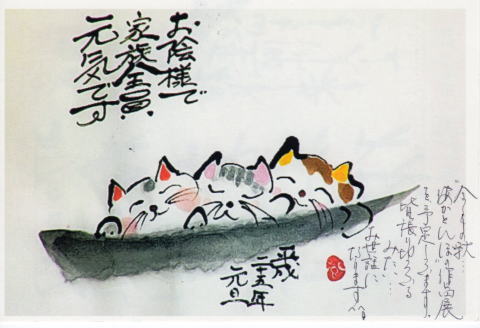 お陰様で
家族全員、
元気です
平成
二十五年
元旦
今年の秋…
"あかとんぼ"作品展
を予定しています。
皆張り切ってる
みたい…
お世話に
なりますが